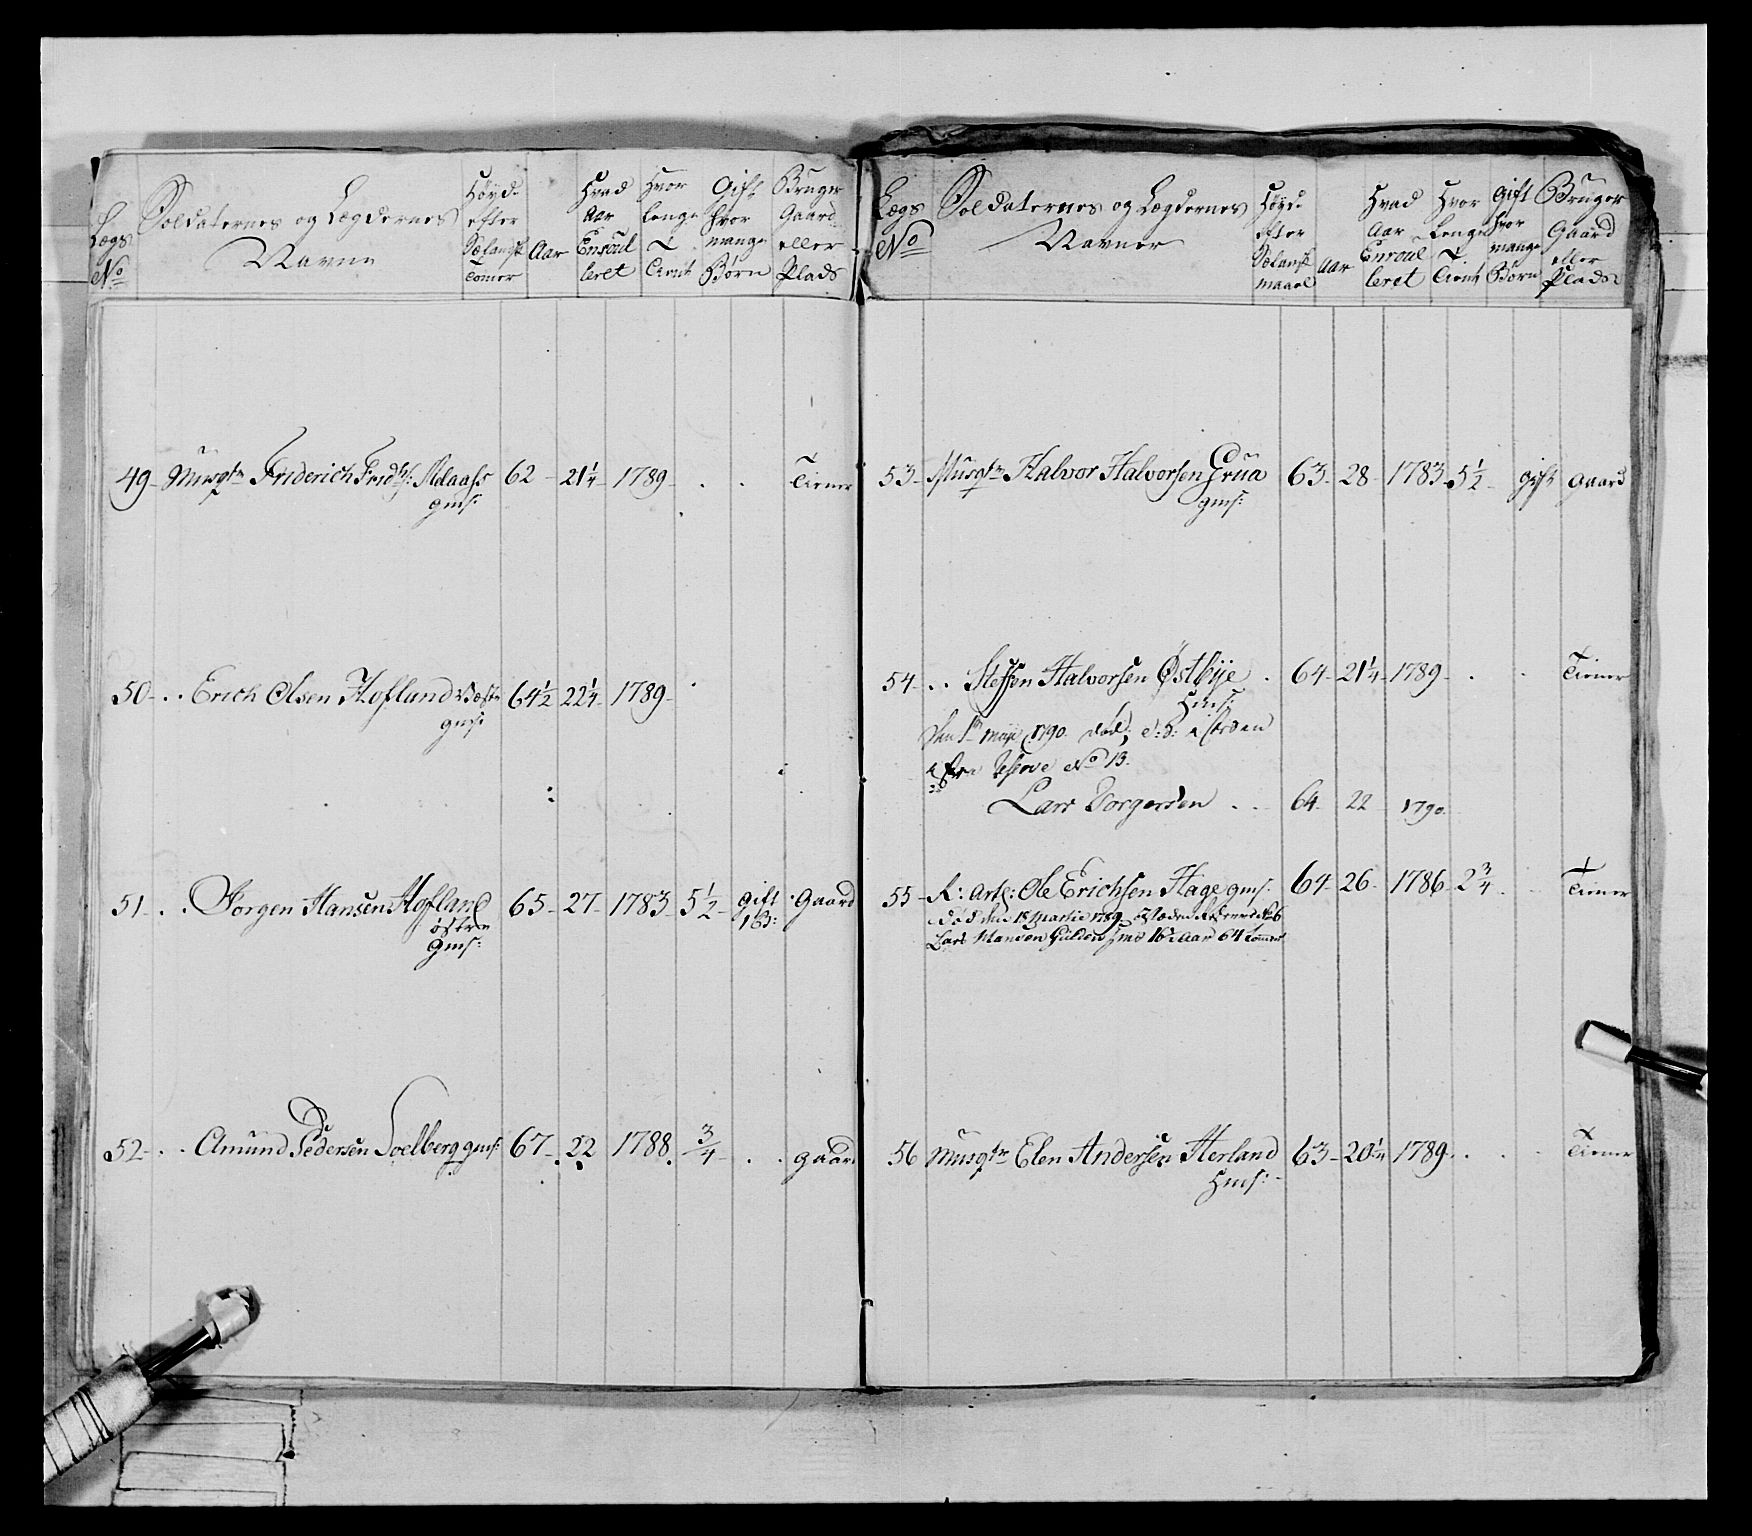 Lægs No
Soldaternes og Lægdernes Navne
Høyde efter Sælansk Tomer
Aar
Hvad Aar Enroulleret
Hvor lenge Tient
Gift hvor mange Børn
Bruger Gaard eller Plads
49 Musqtr Friderich Fridhs: 62 21 1/4 1789 Tiener
gms:
50 Erich Olsen Hofland Væstre 64 1/2 22 1/4 1789
gms:
51 Jorgen Hansen Hofland 65 27 1783 5 1/2 gift 1 B: Gaard
østre
Gms:
52 Amund Pedersen Soelberg gms: 67 22 1788 3/4 gaard
Lægs No
Soldaternes og Lægdernes Navner
Høyde efter Sælansk maael
Aar
Hvad Aar Enroulleret
Hvor Lenge Tient
Gift hvor mange Børn
Bruger Gaard eller Plads
53 Musqtr Halvor Halvorsen Grua 63 28 1783 5 1/2 gift gaard
gms:
54 Steffen Halvorsen Østbye 64 21 1/4 1789 Tiener
Hms:
Den 1te 1790 død; i steden
No 13.
Lars Torgersen 64 22 1790
55 R: Art: Ole Erichsen Hage gms: 64 26 1786 2 3/4 Tiener
død den 18 Martie 1789 isteden No 6
Lars Hansen Gulden hms 16 Aar 64 tommer
56 Musqtr Elen Andersen Herland 63 20 1/4 1789 Tiener
Hms: